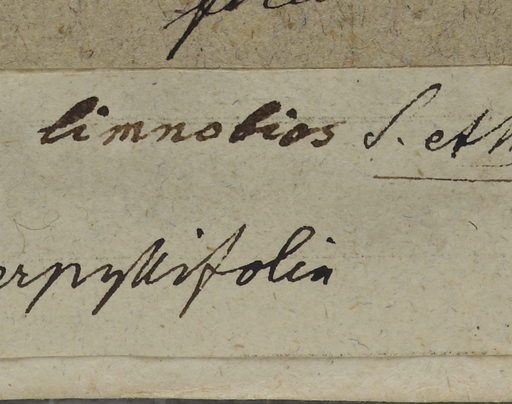 limnobios S. et
erpyllifolia